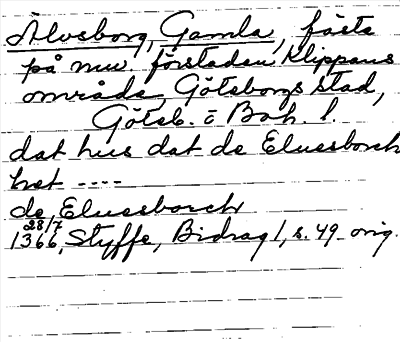 Älvsborg, Gamla, fäste
på nuv. förstaden Klippans
område, Göteborgs stad,
Göteb. o Boh. l.
dat hus dat de Eluesborch
het ----
de, Eluesborch
28/7
1366, Styffe, Bidrag 1, s. 49 orig.